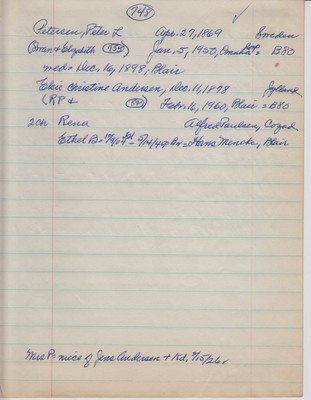 748
Petersen, Peter L Apr. 27, 1869 Sweden
(Oman + Elizabeth 938) Jan. 5, 1950, Omaha = B80
med = Dec. 16, 1898, Blair
Elsie Christine Andersen, Dec. 16, 1878 Jylland
(RP + Feb. 16, 1960, Blair = B80
2ch Rena Alfred Paulsen, Cozad
Ethel B = 5/14/44 Bu = Hans Mencke, Blair
Mrs P = niece of Jens Andersen + Kd. 9/15/26